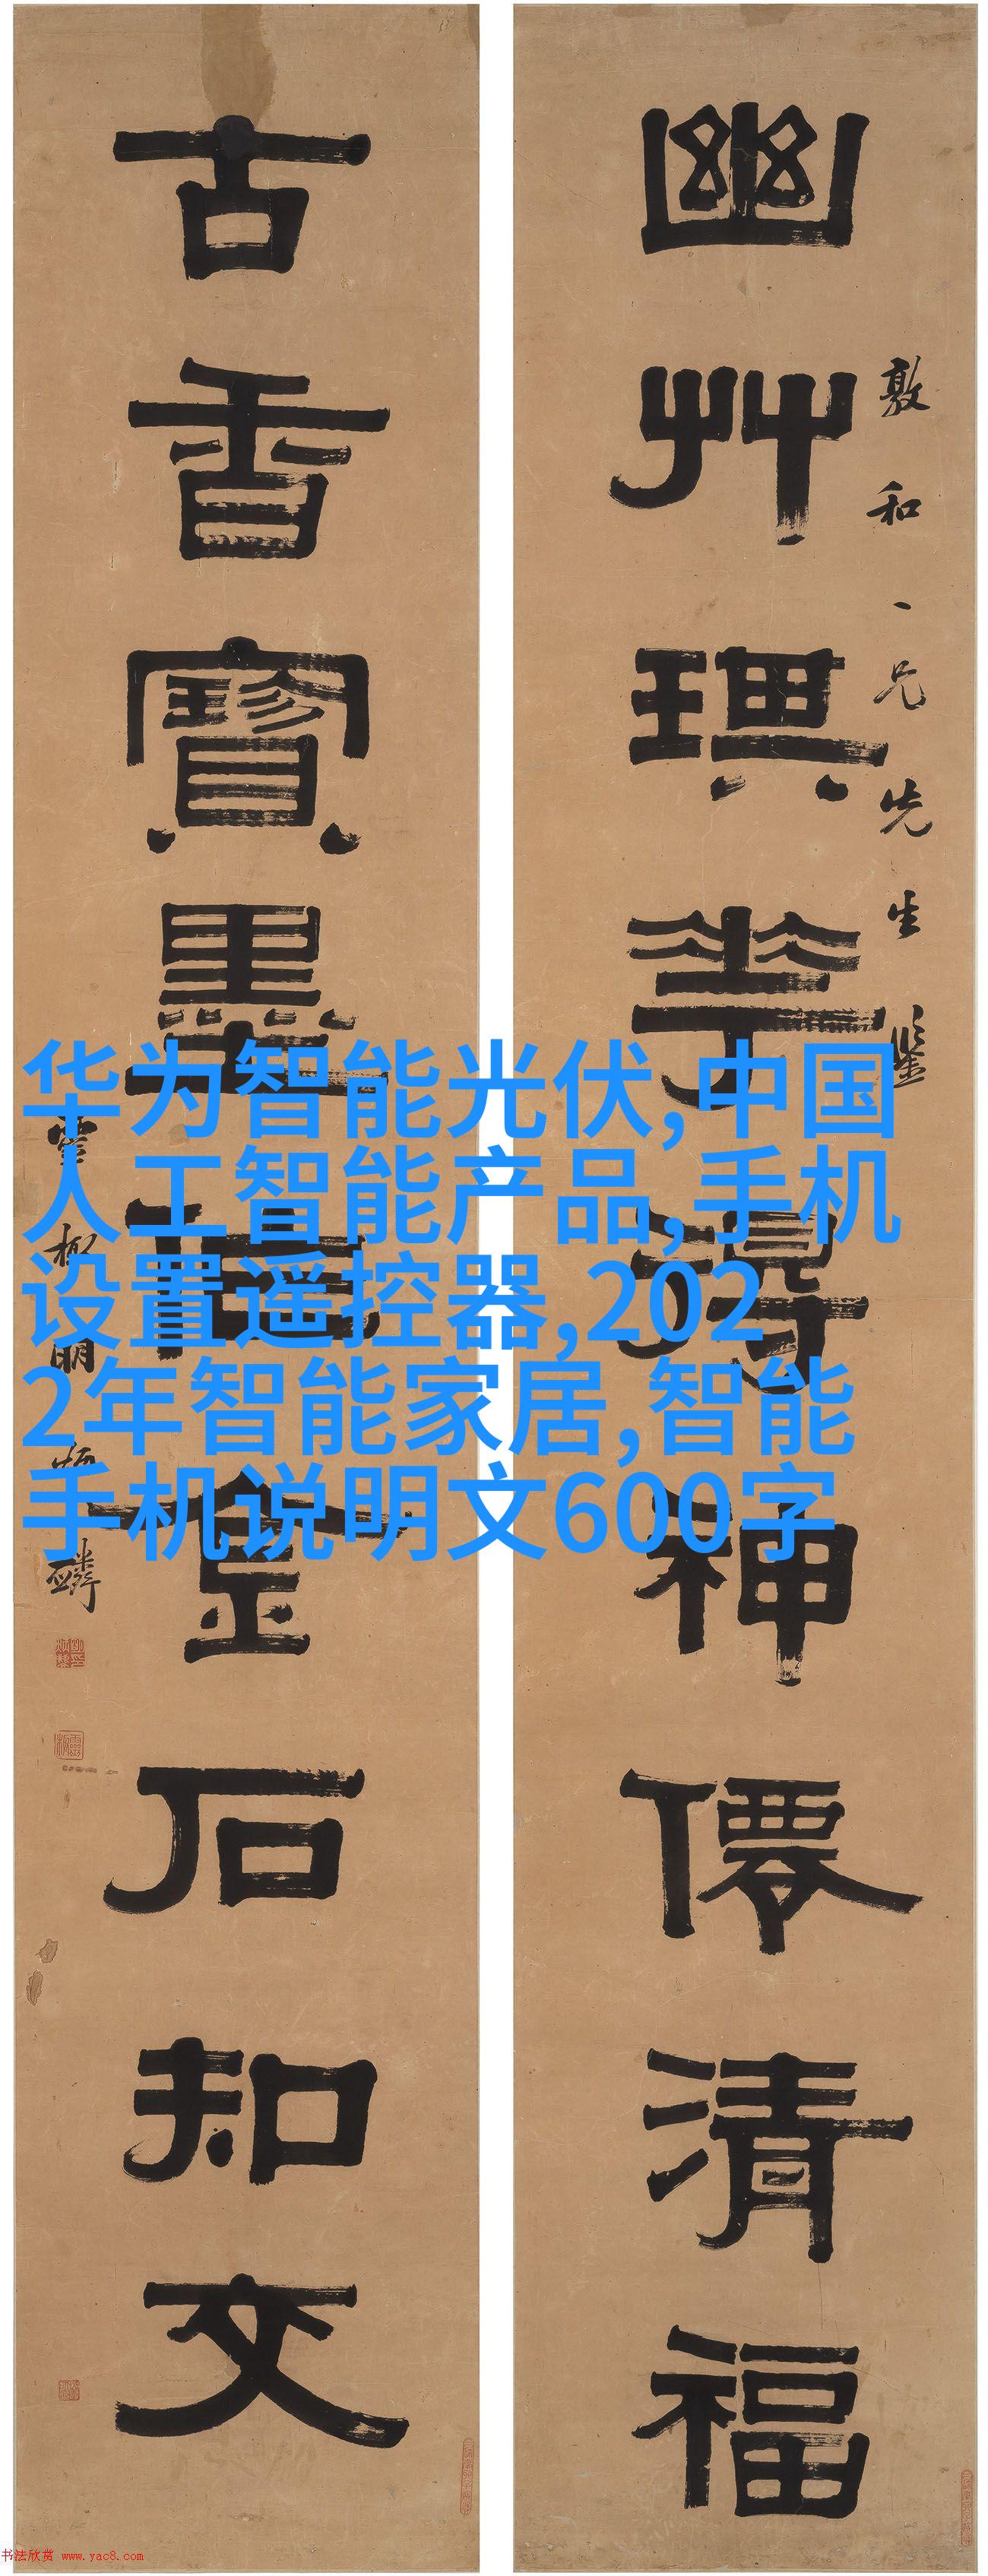 幽艸琪華得神僊清福
敦和一兄先生鑒
古香寶墨
金石知文
華為智能光伏,中国
人工智能产品,手机
设置遥控器,202
2年智能家居,智能
手机说明文600字
书法欣赏 www.yac8.com